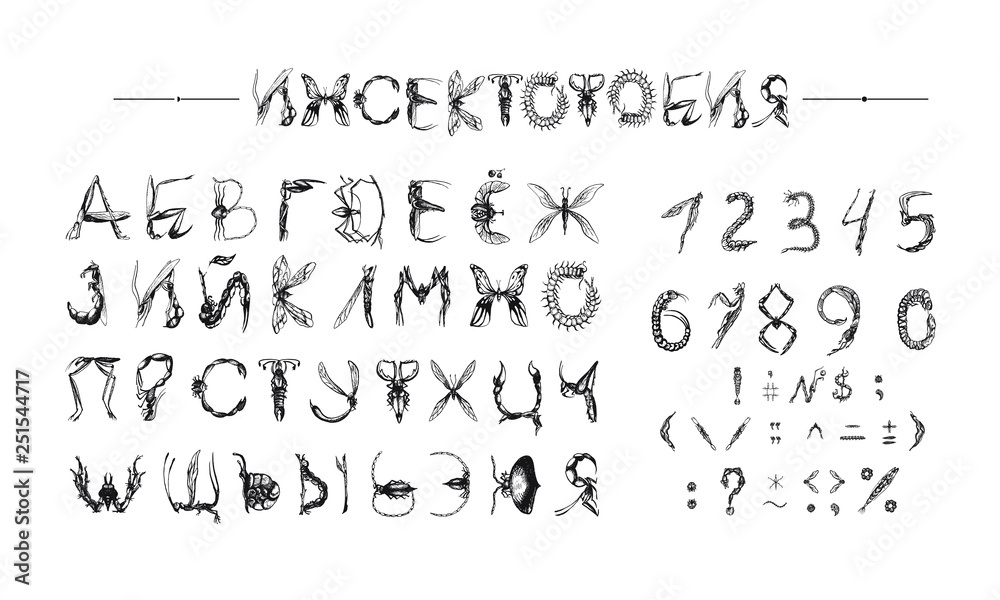 ИНСЕКТОФОБИЯ
А Б В Г Д Е Ё Ж
З И Й К Л М Н О
П Р С Т У Ф Х Ц Ч
Ш Щ Ъ Ы Ь Э Ю Я
1 2 3 4 5
6 7 8 9 0
! # № $ ;
( \ / " ^ = ± )
: ? * ~ < > %
Adobe Stock | #251544717